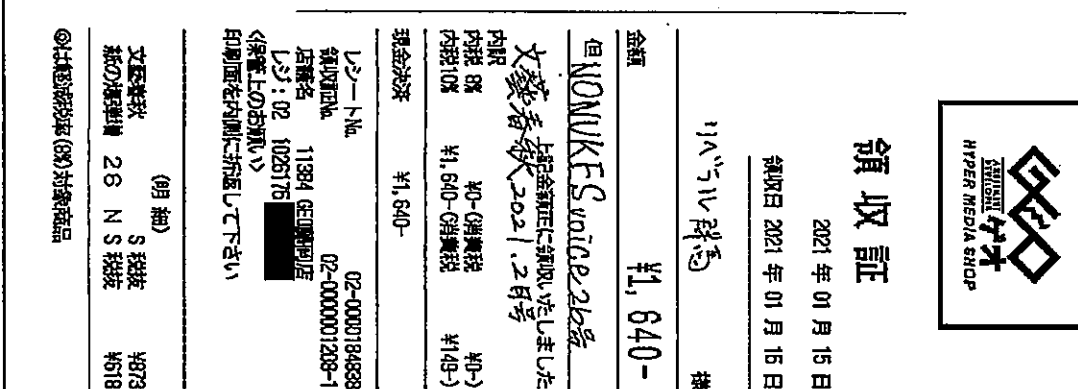 GEO
AMUSEMENT DEVELOPE
ゲオ
HYPER MEDIA SHOP
領収証
2021 年 01 月 15 日
領収日 2021 年 01 月 15 日
リベラル 様
金額 ¥1,640-
但 NONUKES voice 26号
文藝春秋 2021.2月号
上記金額正に領収いたしました
内訳
内税 8% ¥0-(消費税 ¥0-)
内税10% ¥1,640-(消費税 ¥149-)
現金決済 ¥1,640-
レシートNo. 02-0000184838
領収証No. 02-0000001208-1
店舗名 11384 GEO 店
レジ:02 1026176
<保管上のお願い>
印刷面を内側に折返して下さい
(明 細)
文藝春秋 S 税抜 ¥873
紙の爆弾増 26 N S 税抜 ¥618
◎は軽減税率(8%)対象商品